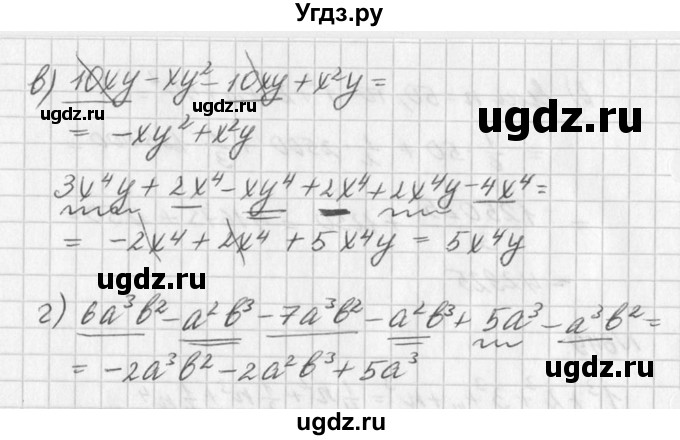 Угдз.ру
в) 10xy - xy² - 10xy + x²y =
ugdz.ru ugdz.ru
= -xy² + x²y
3x⁴y + 2x⁴ - xy⁴ + 2x⁴ + 2x⁴y - 4x⁴ =
= -2x⁴ + 2x⁴ + 5x⁴y = 5x⁴y
ugdz.ru ugdz.ru
г) 6a³b² - a²b³ - 7a³b² - a²b³ + 5a³ - a³b² =
= -2a³b² - 2a²b³ + 5a³
ugdz.ru ugdz.ru